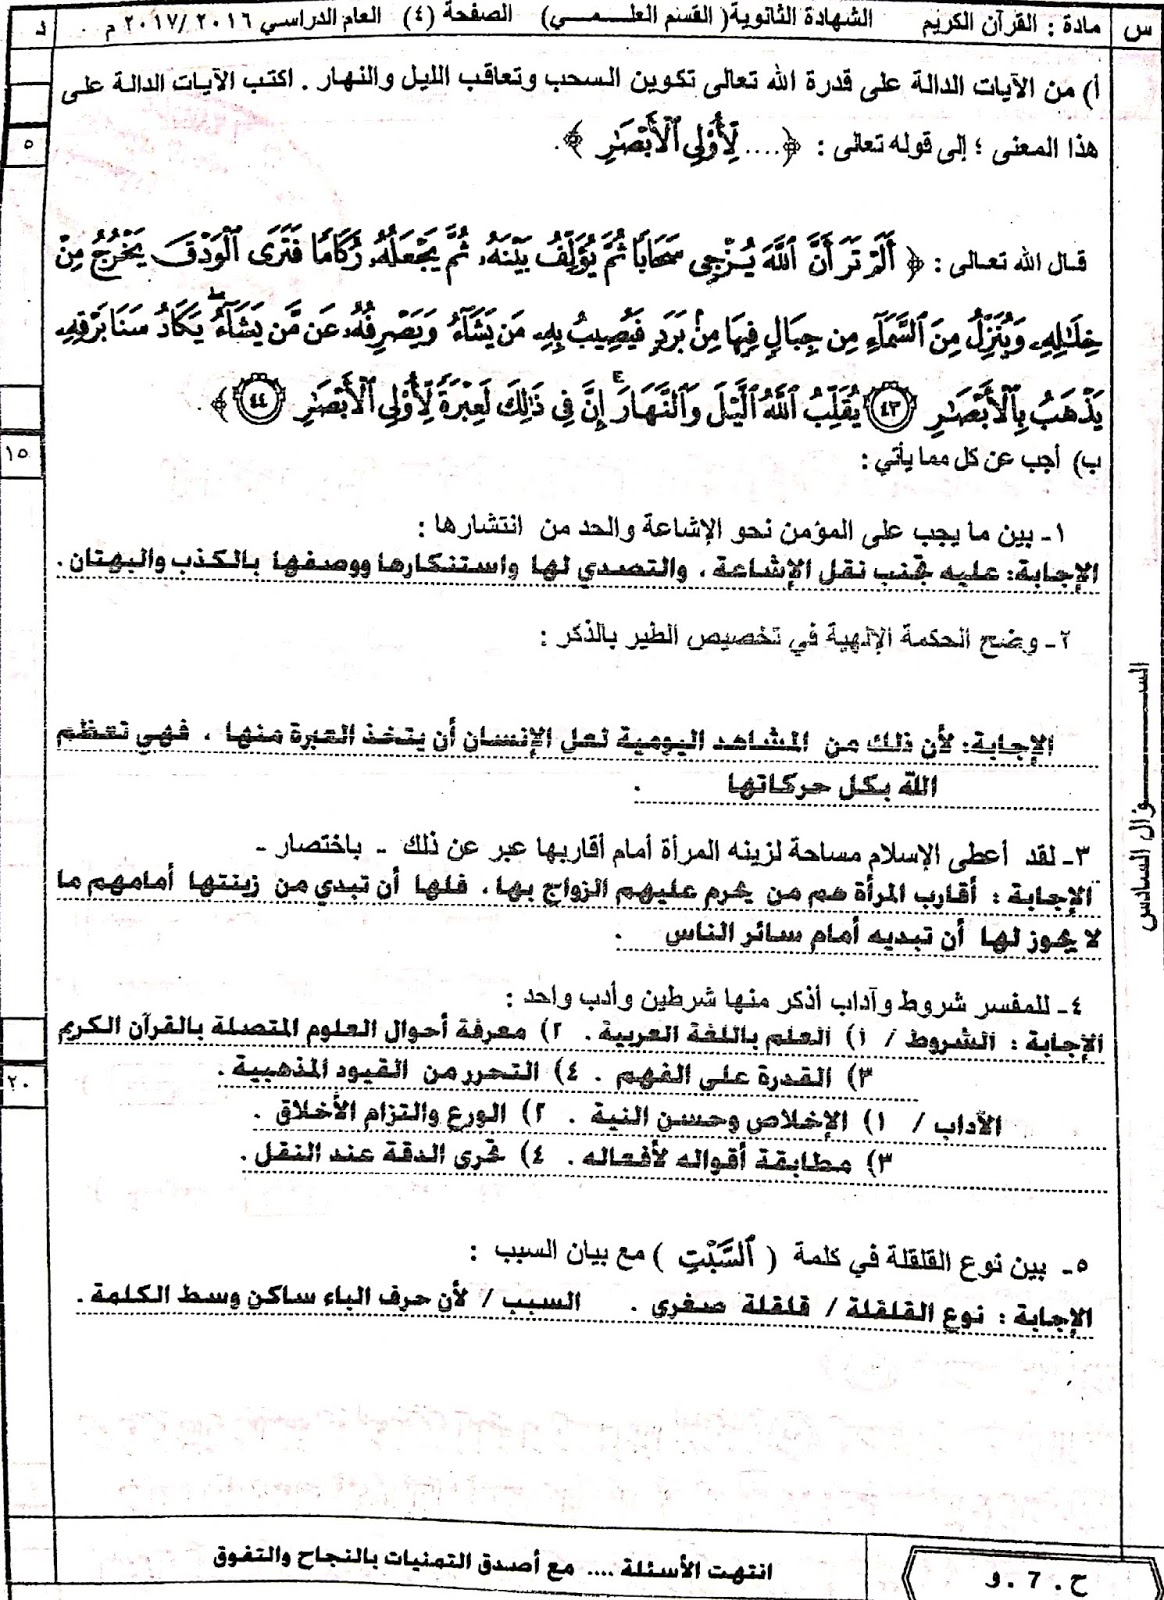 س
مادة : القرآن الكريم الشهادة الثانوية( القسم العلـــمـــي) الصفحة (٤) العام الدراسي ٢٠١٦ /٢٠١٧ م
د
أ) من الآيات الدالة على قدرة الله تعالى تكوين السحب وتعاقب الليل والنهار . اكتب الآيات الدالة على
هذا المعنى ؛ إلى قوله تعالى : ﴿ .... لِّأُوْلِى ٱلْأَبْصَٰرِ ﴾.
٥
قال الله تعالى : ﴿ أَلَمْ تَرَ أَنَّ ٱللَّهَ يُزْجِى سَحَابًا ثُمَّ يُؤَلِّفُ بَيْنَهُۥ ثُمَّ يَجْعَلُهُۥ رُكَامًا فَتَرَى ٱلْوَدْقَ يَخْرُجُ مِنْ
خِلَٰلِهِۦ وَيُنَزِّلُ مِنَ ٱلسَّمَآءِ مِن جِبَالٍ فِيهَا مِنۢ بَرَدٍ فَيُصِيبُ بِهِۦ مَن يَشَآءُ وَيَصْرِفُهُۥ عَن مَّن يَشَآءُ ۖ يَكَادُ سَنَا بَرْقِهِۦ
يَذْهَبُ بِٱلْأَبْصَٰرِ ٤٣ يُقَلِّبُ ٱللَّهُ ٱلَّيْلَ وَٱلنَّهَارَ ۚ إِنَّ فِى ذَٰلِكَ لَعِبْرَةً لِّأُوْلِى ٱلْأَبْصَٰرِ ٤٤ ﴾
ب) أجب عن كل مما يأتي :
١٥
١- بين ما يجب على المؤمن نحو الإشاعة والحد من انتشارها :
الإجابة: عليه تجنب نقل الإشاعة ، والتصدي لها واستنكارها ووصفها بالكذب والبهتان .
٢- وضح الحكمة الإلهية في تخصيص الطير بالذكر :
الإجابة: لأن ذلك من المشاهد اليومية لعل الإنسان أن يتخذ العبرة منها ، فهي تعظم
الله بكل حركاتها .
٣- لقد أعطى الإسلام مساحة لزينه المرأة أمام أقاربها عبر عن ذلك - باختصار -
الإجابة : أقارب المرأة هم من يحرم عليهم الزواج بها ، فلها أن تبدي من زينتها أمامهم ما
لا يجوز لها أن تبديه أمام سائر الناس .
٤- للمفسر شروط وآداب أذكر منها شرطين وأدب واحد :
الإجابة : الشروط / ١) العلم باللغة العربية . ٢) معرفة أحوال العلوم المتصلة بالقرآن الكريم
٣) القدرة على الفهم . ٤) التحرر من القيود المذهبية .
٢٠
الآداب / ١) الإخلاص وحسن النية . ٢) الورع والتزام الأخلاق .
٣) مطابقة أقواله لأفعاله . ٤) تحرى الدقة عند النقل .
٥- بين نوع القلقلة في كلمة ( ٱلسَّبْتِ ) مع بيان السبب :
الإجابة : نوع القلقلة / قلقلة صغرى . السبب / لأن حرف الباء ساكن وسط الكلمة .
الســـــــــؤال السادس
انتهت الأسئلة .... مع أصدق التمنيات بالنجاح والتفوق
ح . 7 . و